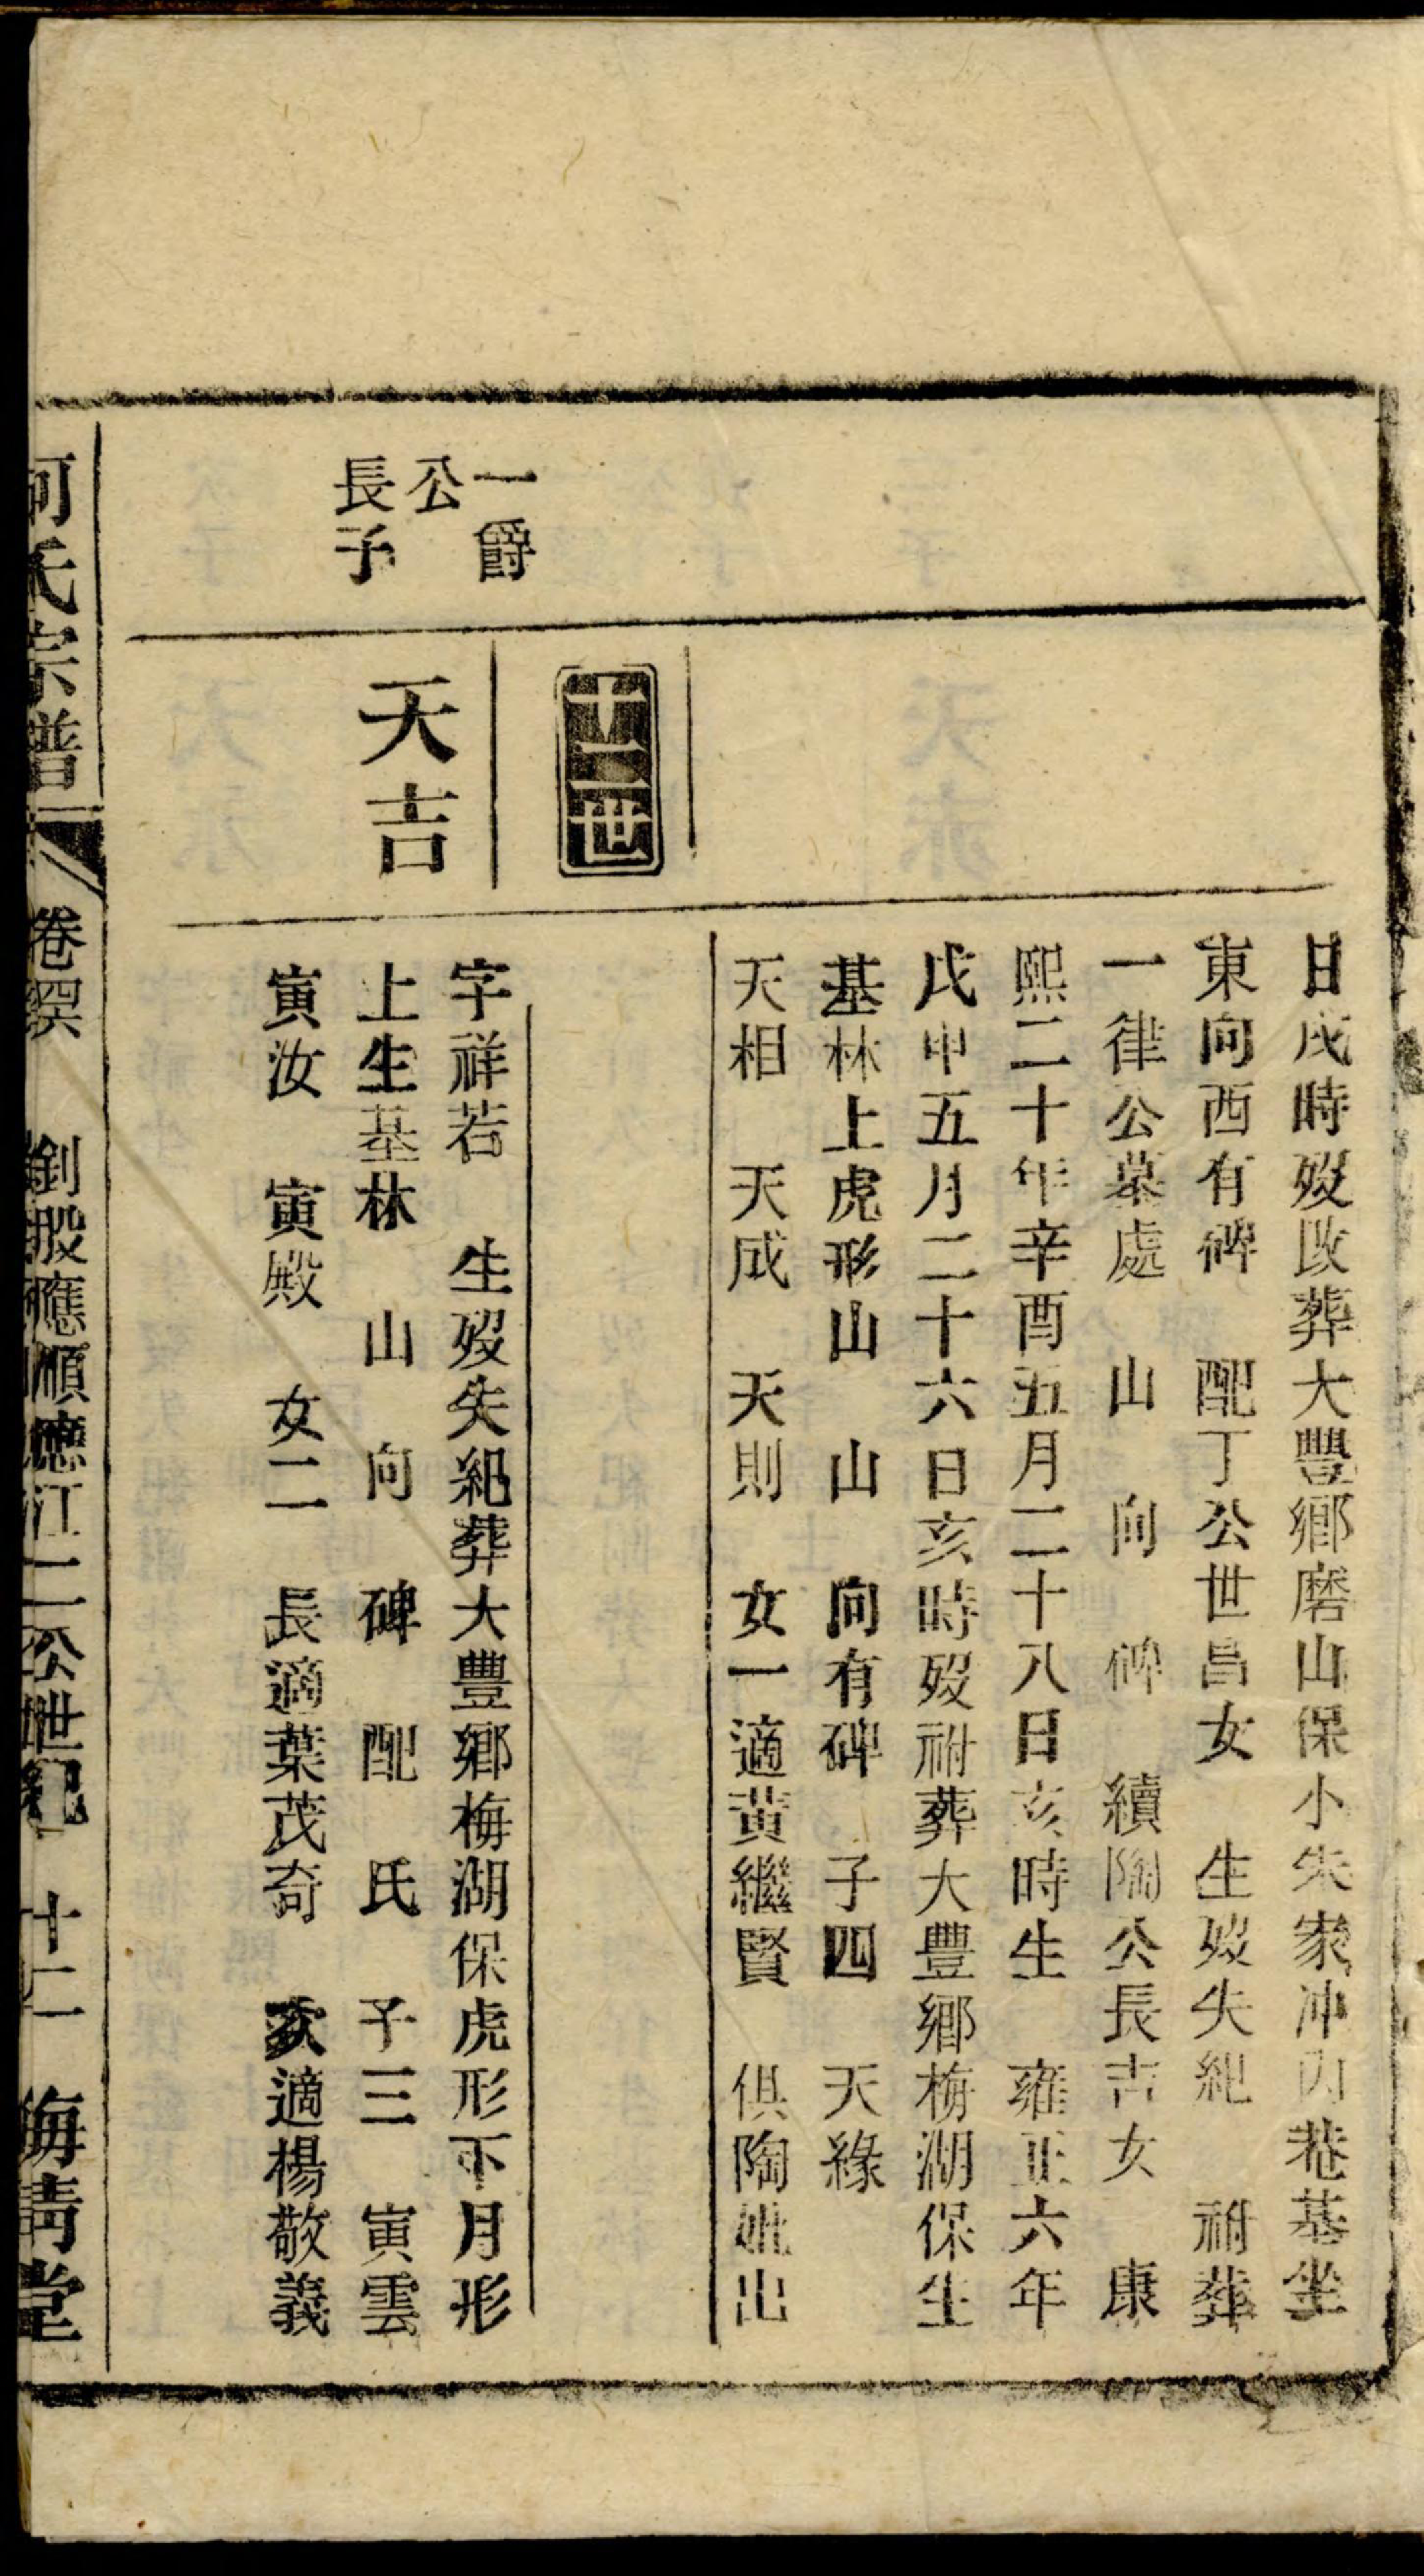 日戌時歿改葬大豐鄉磨山保小朱家冲內巷基坐
東向西有碑 配丁公世昌女 生歿失紀 祔葬
一律公墓處 山 向 碑 續陶公長吉女 康
熙二十年辛酉五月二十八日亥時生 雍正六年
戊申五月二十六日亥時歿祔葬大豐鄉梅湖保生
基林上虎形山 山 向有碑 子四 天緣
天相 天成 天則 女一適黃繼賢 俱陶妣出
十二世
一爵
公
長子
天吉
字祥若 生歿失紀葬大豐鄉梅湖保虎形下月形
上生基林 山 向 碑 配 氏 子三 寅雲
寅汝 寅殿 女二 長適葉茂奇 次適楊敬義
何氏宗譜 卷 釗股應順應江二公世紀 十二 梅靑堂